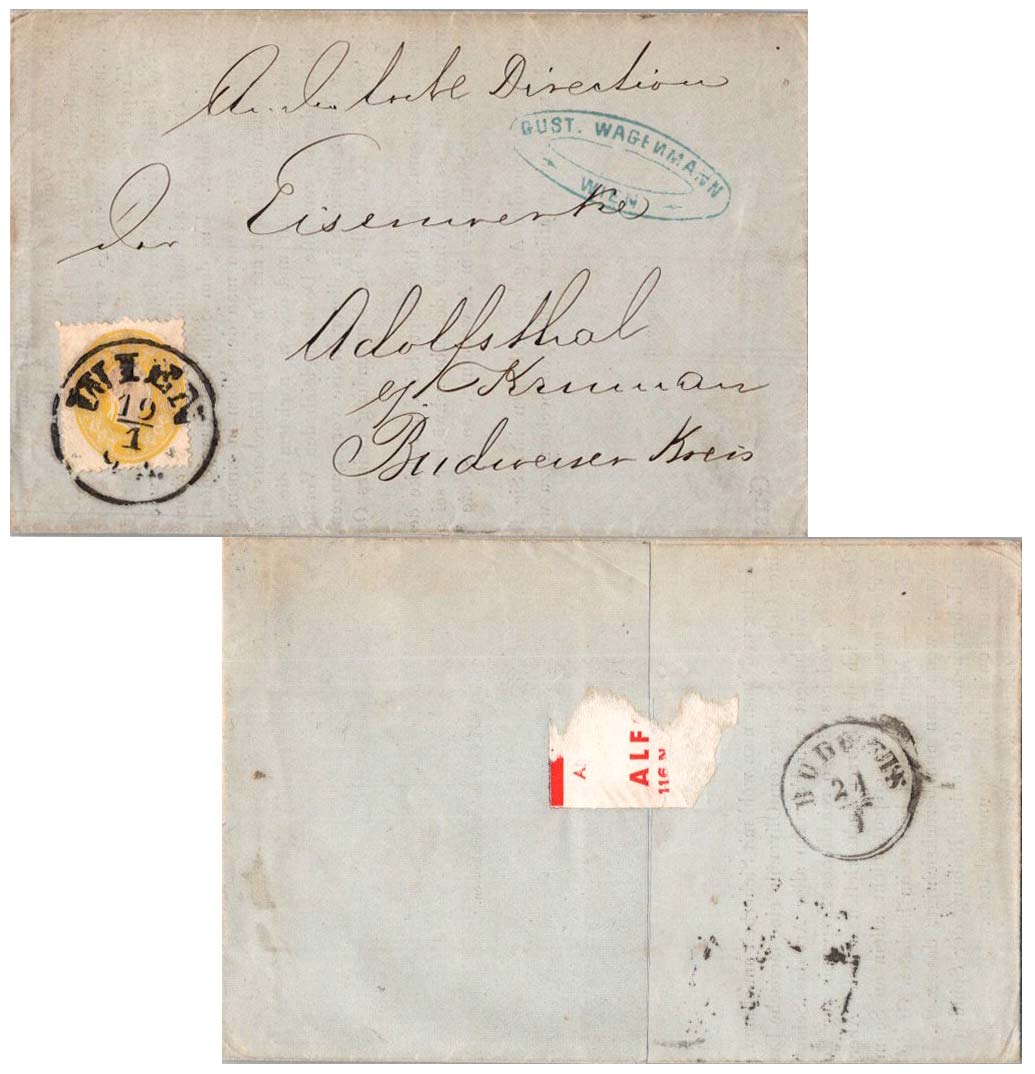 An die löbl Direction
GUST. WAGENMANN
WIEN
der Eisenwerke
Adolfsthal
WIEN
19
1
p/ Krumau
Budweiser Kreis
ALF
116 N
BUDWEIS
21
1